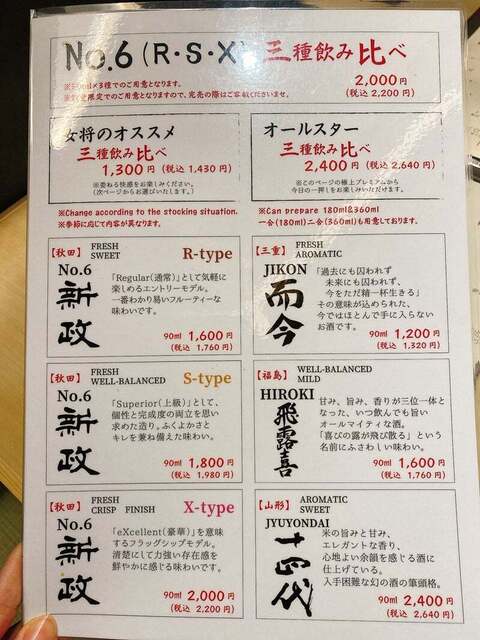 No.6 (R・S・X) 三種飲み比べ
×3種でのご用意となります。
限定でのご用意となりますので、完売の際はご容赦くださいませ。
2,000円
(税込 2,200円)
女将のオススメ
三種飲み比べ
1,300円 (税込 1,430円)
※委ねる快感をお楽しみください。
(次ページからお選びいたします。)
オールスター
三種飲み比べ
2,400円 (税込 2,640円)
※このページの極上プレミアムから
今日の一押しをお楽しみいただけます。
※Change according to the stocking situation.
※季節に応じて内容が異なります。
※Can prepare 180ml&360ml
一合(180ml)二合(360ml)も用意しております。
【秋田】 FRESH
SWEET
R-type
No.6
新政
「Regular(通常)」として気軽に
楽しめるエントリーモデル。
一番わかり易いフルーティーな
味わいです。
90ml 1,600円
(税込 1,760円)
【秋田】 FRESH
WELL-BALANCED
S-type
No.6
新政
「Superior(上級)」として、
個性と完成度の両立を思い
求めた造り。ふくよかさと
キレを兼ね備えた味わい。
90ml 1,800円
(税込 1,980円)
【秋田】 FRESH
CRISP FINISH
X-type
No.6
新政
「eXcellent(豪華)」を意味
するフラッグシップモデル。
清楚にして力強い存在感を
鮮やかに感じる味わいです。
90ml 2,000円
(税込 2,200円)
【三重】 FRESH
AROMATIC
JIKON
而今
「過去にも囚われず
未来にも囚われず、
今をただ精一杯生きる」
その意味が込められた、
今ではほとんど手に入らない
お酒です。
90ml 1,200円
(税込 1,320円)
【福島】 WELL-BALANCED
MILD
HIROKI
飛露喜
甘み、旨み、香りが三位一体と
なった、いつ飲んでも旨い
オールマイティな酒。
「喜びの露が飛び散る」という
名前にふさわしい味わい。
90ml 1,600円
(税込 1,760円)
【山形】 AROMATIC
SWEET
JYUYONDAI
十四代
米の旨みと甘み、
エレガントな香り、
心地よい余韻を感じる酒に
仕上げている。
入手困難な幻の酒の筆頭格。
90ml 2,400円
(税込 2,640円)